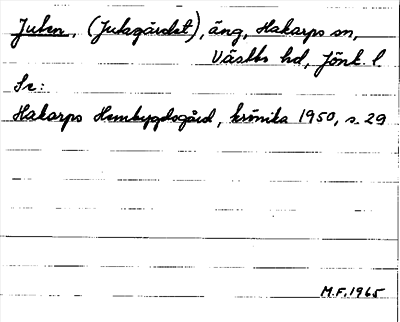 Julen, (Julagärdet), äng, Hakarps sn,
Västbo hd, Jönk. l.
Se:
Hakarps Hembygdsgård, krönika 1950, s. 29
M.F. 1965